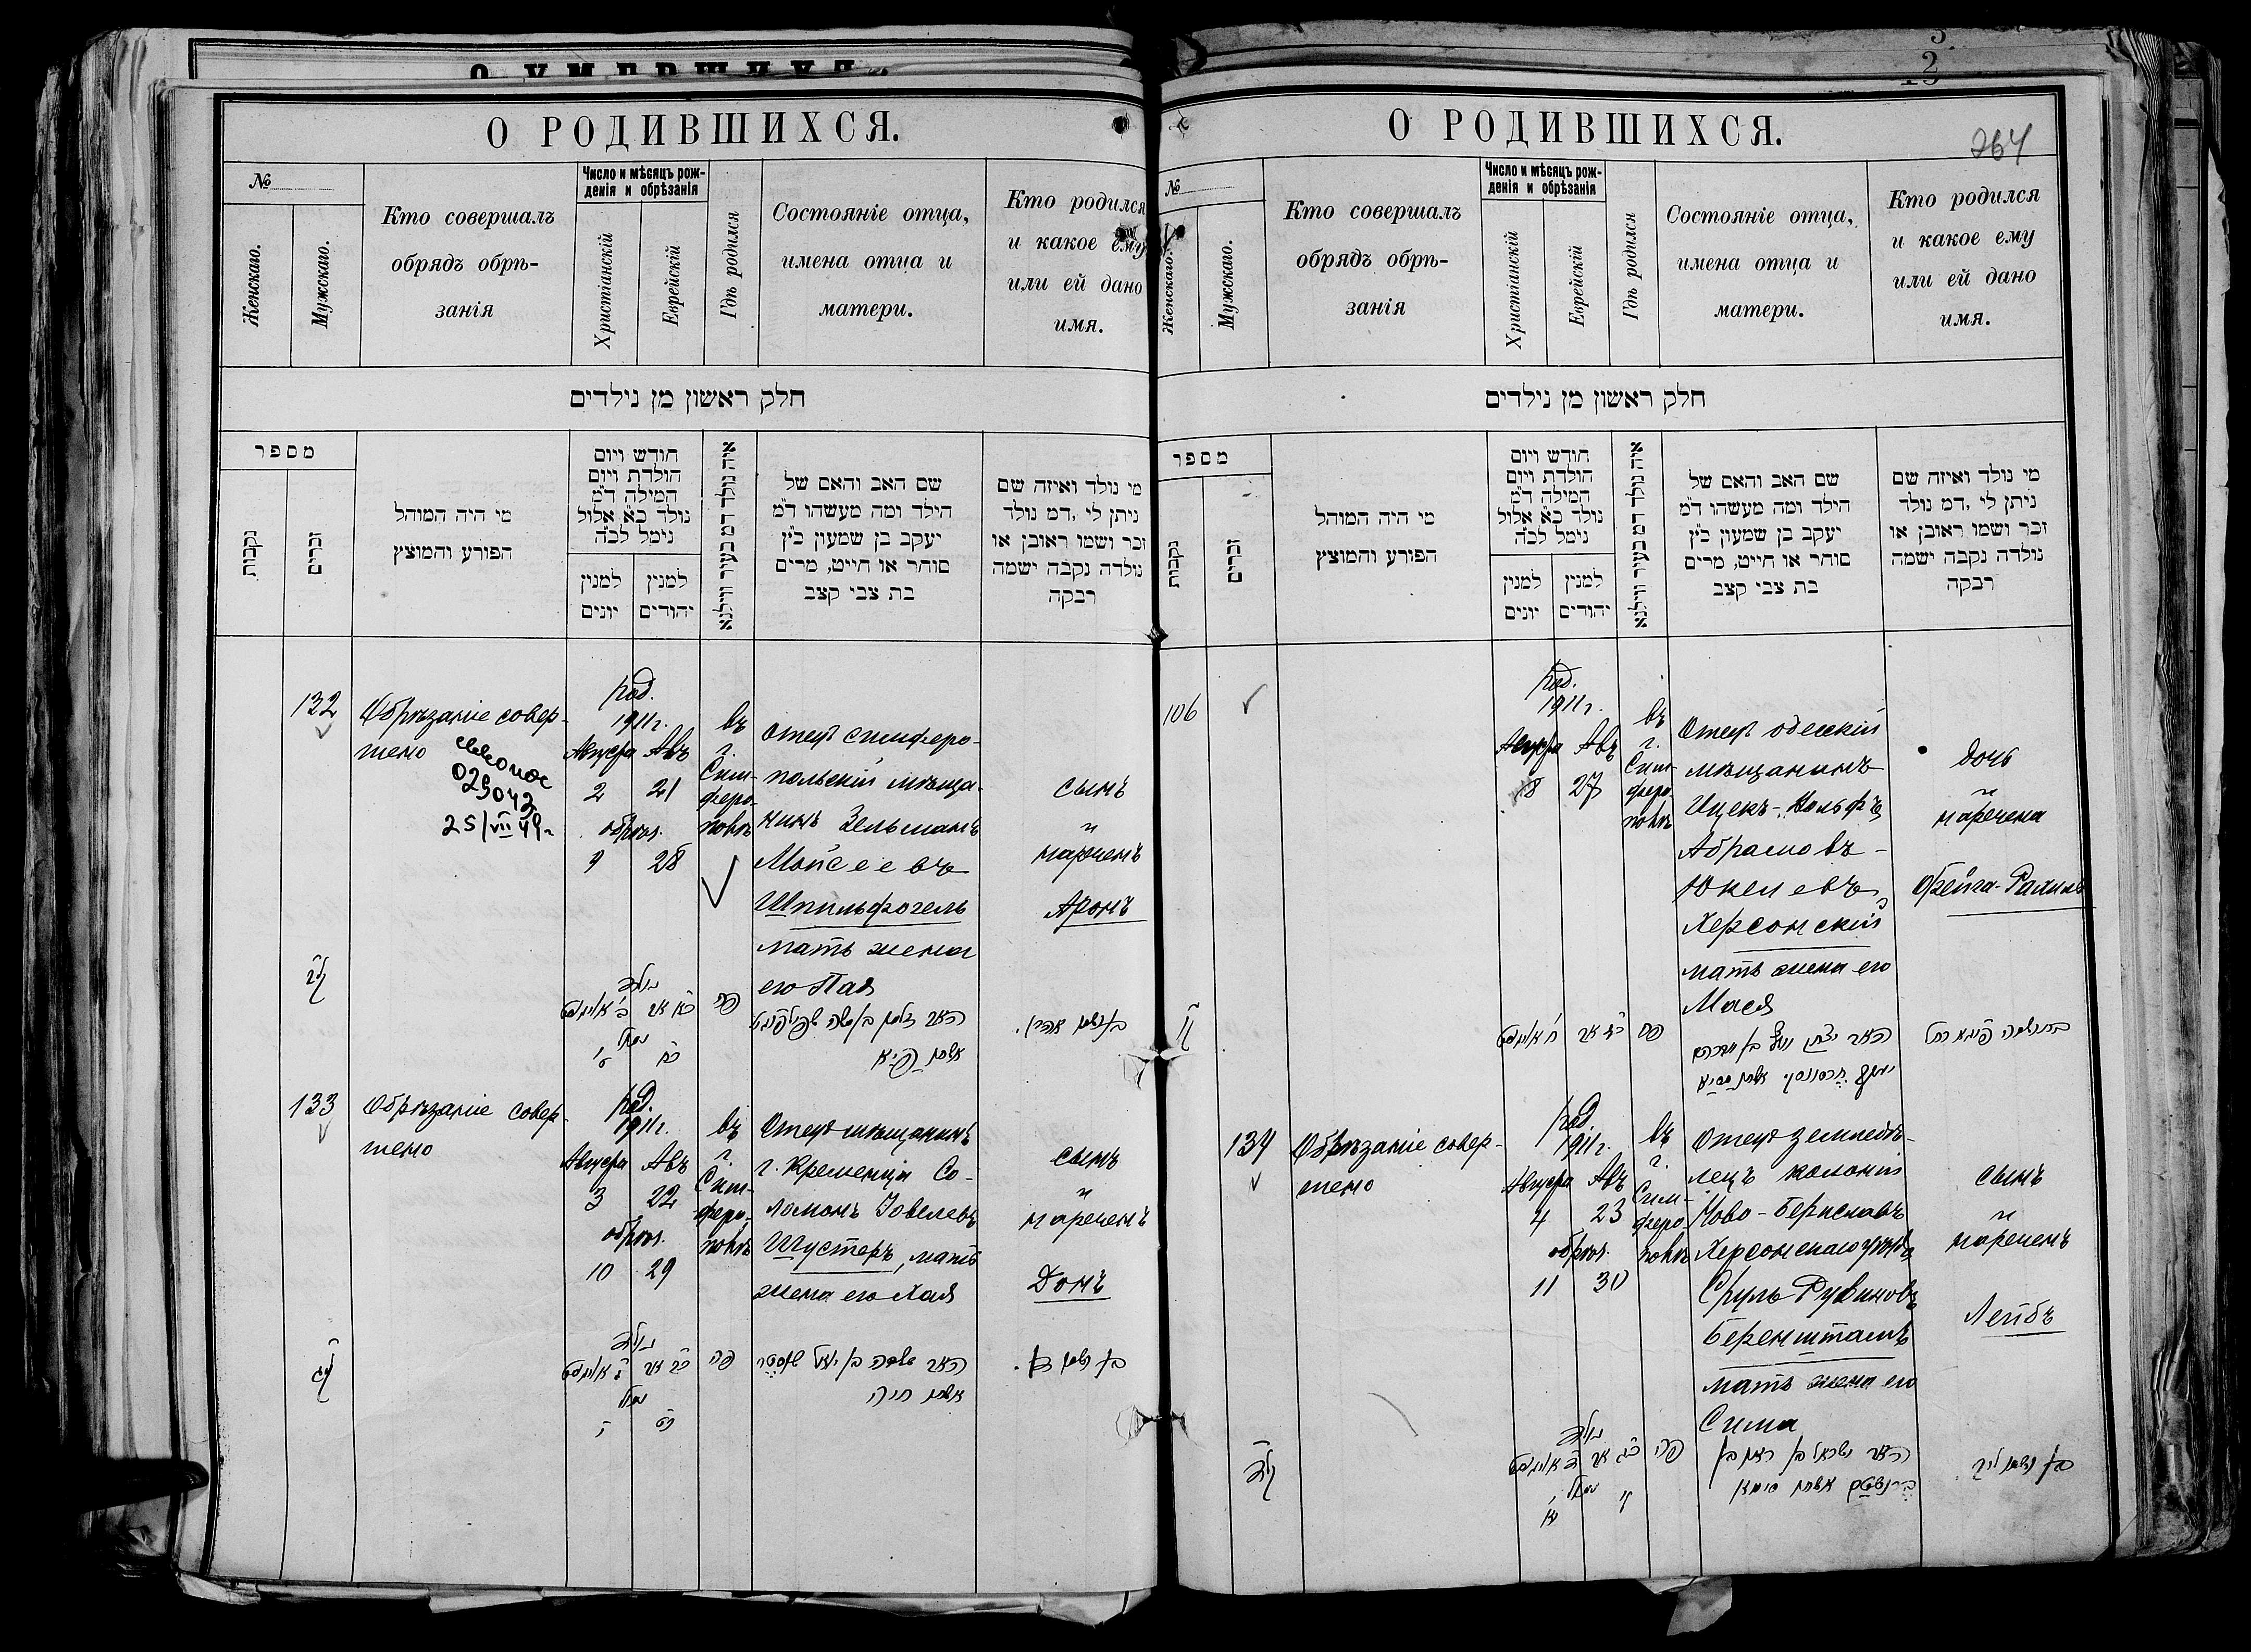 О РОДИВШИХСЯ.
№
Женскаго.
Мужскаго.
Кто совершалъ
обрядъ обрѣ-
занія
Число и мѣсяцъ рож-
денія и обрѣзанія
Христіанскій
Еврейскій
Гдѣ родился
Состояніе отца,
имена отца и
матери.
Кто родился
и какое ему
или ей дано
имя.
חלק ראשון מן נילדים
מספר
נקבות
זכרים
מי היה המוהל
הפורע והמוצץ
חודש ויום
הולדת ויום
המילה ד״מ
נולד כ״א אלול
נימל לכ״ה
למנין
יונים
למנין
יהודים
איה נולד דמ בעיר ווילנא
שם האב והאם של
הילד ומה מעשהו ד״מ
יעקב בן שמעון כ״ץ
סוחר או חייט, מרים
בת צבי קצב
מי נולד ואיזה שם
ניתן לי, דמ נולד
זכר ושמו ראובן או
נולדה נקבה ישמה
רבקה
132
Обрѣзаніе совер-
шено
029042
25/VII 49г.
род.
1911г.
Августа Авъ
2 21
обрѣз.
9 28
въ
г.
Сим-
феро-
полѣ
Отецъ симферо-
польскій мѣща-
нинъ Зельманъ
Мойсеевъ
Шпильфогель
мать жена
его Пая
сынъ
и
нареченъ
Аронъ
נולד
כ״א אב ב׳ אויגוסט
נמול
כ״ח
פה
האב זלמן בן משה שפילפויגל
אמו פייא
בן ושמו אהרן.
133
Обрѣзаніе совер-
шено
род.
1911г.
Августа Авъ
3 22
обрѣз.
10 29
въ
г.
Сим-
феро-
полѣ
Отецъ мѣщанинъ
г. Кременца Со-
ломонъ Іовелевъ
Шустеръ, мать
жена его Хая
сынъ
и
нареченъ
Донъ
נולד
כ״ב אב ג׳ אויגוסט
נמול
כ״ט י׳
פה
האב שלמה בן יואל שוסטר
אמו חיה
בן ושמו דן.
О РОДИВШИХСЯ.
264
№
Женскаго.
Мужскаго.
Кто совершалъ
обрядъ обрѣ-
занія
Число и мѣсяцъ рож-
денія и обрѣзанія
Христіанскій
Еврейскій
Гдѣ родился
Состояніе отца,
имена отца и
матери.
Кто родился
и какое ему
или ей дано
имя.
חלק ראשון מן נילדים
מספר
נקבות
זכרים
מי היה המוהל
הפורע והמוצץ
חודש ויום
הולדת ויום
המילה ד״מ
נולד כ״א אלול
נימל לכ״ה
למנין
יונים
למנין
יהודים
איה נולד דמ בעיר ווילנא
שם האב והאם של
הילד ומה מעשהו ד״מ
יעקב בן שמעון כ״ץ
סוחר או חייט, מרים
בת צבי קצב
מי נולד ואיזה שם
ניתן לי, דמ נולד
זכר ושמו ראובן או
נולדה נקבה ישמה
רבקה
106
род.
1911г.
Августа Авъ
8 27
въ
г.
Сим-
феро-
полѣ
Отецъ одесскій
мѣщанинъ
Ицекъ-Вольфъ
Абрамовъ-
Юкелевъ
Херсонскій
мать жена его
Мася
дочь
и
наречена
Фейга-Рахиль
כ״ז אב ח׳ אויגוסט
פה
האב יצחק וואלף בן אברהם
יוקל חרסונסקי אמו מסיא
בת ושמה פייגא רחל
134
Обрѣзаніе совер-
шено
род.
1911г.
Августа Авъ
4 23
обрѣз.
11 30
въ
г.
Сим-
феро-
полѣ
Отецъ земледѣ-
лецъ колоніи
Ново-Бериславъ
Херсонскаго уѣзда
Сруль Рувиновъ
Беренштамъ
мать жена его
Сима
сынъ
и
нареченъ
Лейбъ
נולד
כ״ג אב ד׳ אויגוסט
נמול
ל׳ י״א
פה
האב ישראל בן ראובן
ברנשטם אמו סימא
בן ושמו ליב.